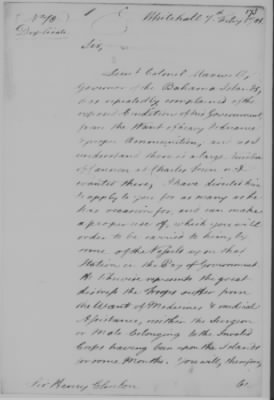 Duplicate
Whitehall 7th Feby 1781.
Sir,
Lieut Colonel Maxwell,
Governor of the Bahama Islands,
has repeatedly complained of the
exposed Condition of his Government,
from the Want of heavy Ordnance
& proper Ammunition, and as I
understand there is a large number
of Cannon at Charles Town not
wanted there, I have directed him
to apply to you for as many as he
has occasion for, and can make
a proper use of, which you will
order to be carried to him, by
some of the Vessels upon that
Station in the Pay of Government.
He likewise represents the great
distress the Troops suffer from
the Want of Medicines & medical
Assistance, neither the Surgeon
or Mate belonging to the Invalid
Corps having been upon the Islands
for some Months. You will, therefore,
Sir Henry Clinton